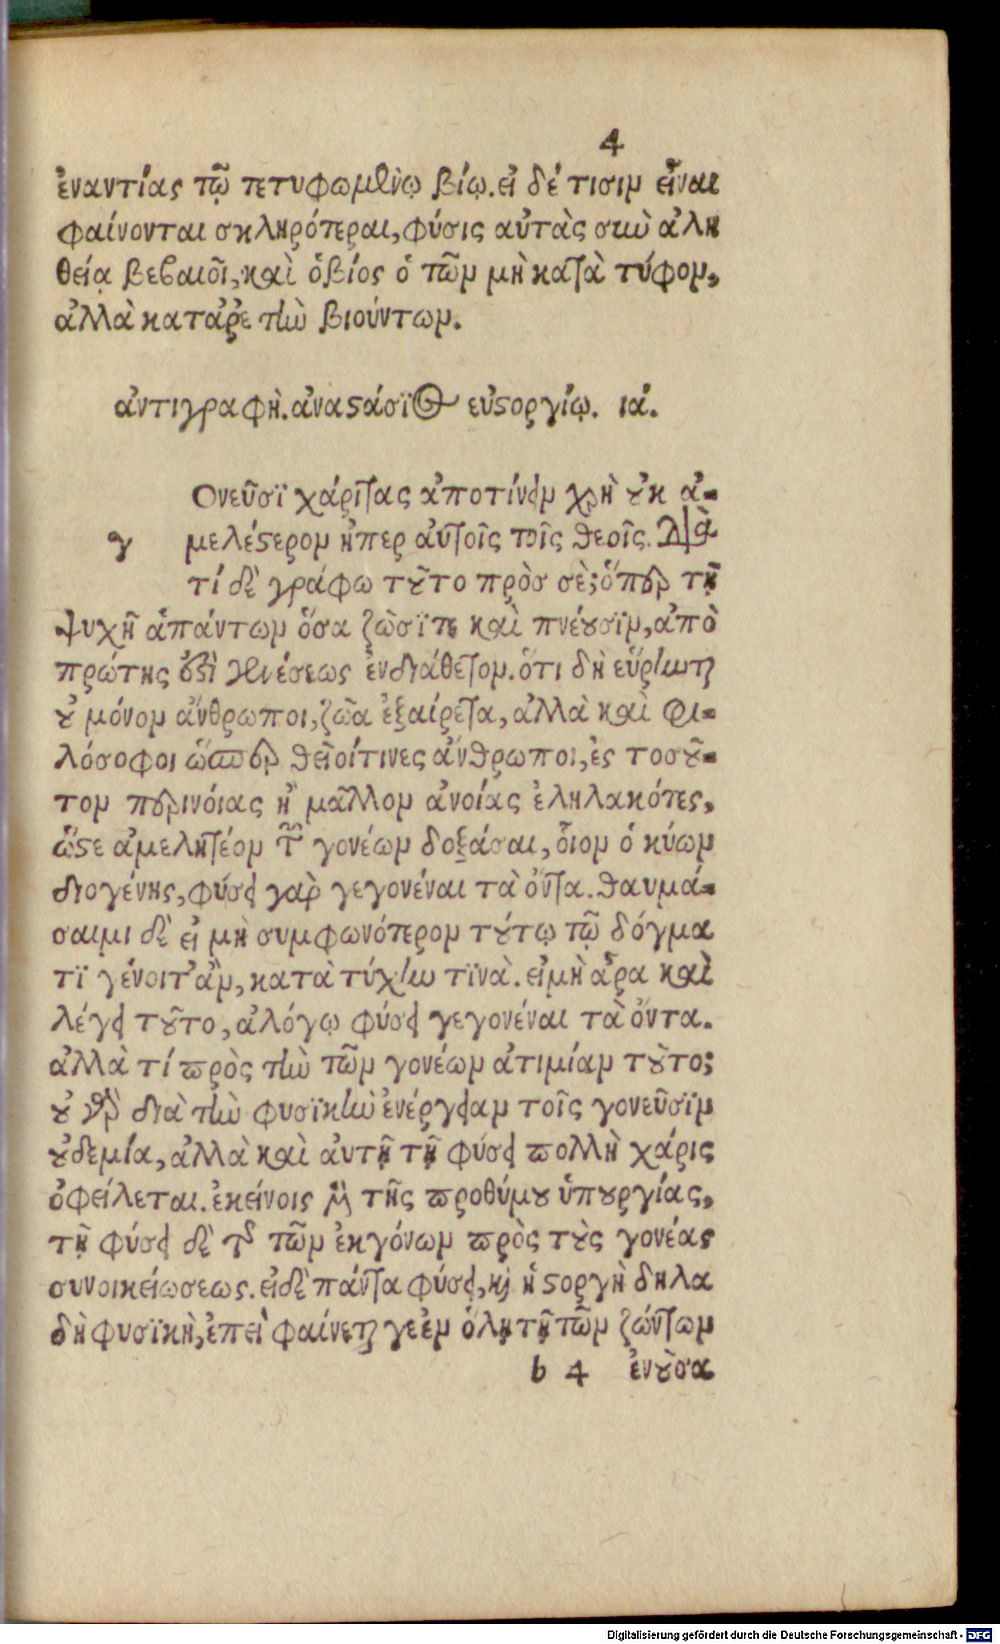 4
ἐναντίας τῷ πετυφωμένῳ βίῳ. εἰ δέ τισιμ εἶναι
φαίνονται σκληρότεραι, φύσις αὐτὰς σὺν ἀλη
θείᾳ βεβαιοῖ, καὶ ὁ βίος ὁ τῶμ μὴ κατὰ τύφομ,
ἀλλὰ κατ' ἀρετὴν βιούντωμ.
ἀντιγραφὴ. ἀναστάσιος εὐστοργίῳ. ιά.
γ
Ονεῦσϊ χάριτας ἀποτίνειμ χρὴ οὐκ ἀ-
μελέστερομ ἤπερ αὐτοῖς τοῖς θεοῖς. διὰ
τί δὲ γράφω τοῦτο πρὸς σὲ; ὅπερ τῇ
ψυχῇ ἁπάντωμ ὅσα ζῶσϊ τε καὶ πνέουσϊμ, ἀπὸ
πρώτης ἐστὶ γενέσεως ἐνδιάθετομ. ὅτι δὴ εὕρηνται
οὐ μόνομ ἄνθρωποι, ζῶα ἐξαίρετα, ἀλλὰ καὶ φι-
λόσοφοι ὥσπερ θεῖοί τινες ἄνθρωποι, ἐς τοσοῦ-
τομ περινόιας ἢ μᾶλλομ ἀνοίας ἐληλακότες,
ὥστε ἀμελητέομ τῶν γονέωμ δοξάσαι, οἷομ ὁ κύωμ
διογένης, φύσει γὰρ γεγονέναι τὰ ὄντα. θαυμά-
σαιμι δὲ εἰ μὴ συμφωνότερομ τούτῳ τῷ δόγμα
τϊ γένοιτ' ἂμ, κατὰ τύχην τϊνὰ. εἰ μὴ ἆρα καὶ
λέγει τοῦτο, ἀλόγῳ φύσει γεγονέναι τὰ ὄντα.
ἀλλὰ τί πρὸς τὴν τῶμ γονέωμ ἀτιμίαμ τοῦτο;
οὐ γὰρ διὰ τὴν φυσϊκὴν ἐνέργειαμ τοῖς γονεῦσϊμ
οὐδεμία, ἀλλὰ καὶ ἀυτῇ τῇ φύσει πολλὴ χάρις
ὀφείλεται. ἐκείνοις μὲν τῆς προθύμου ὑπουργίας,
τῇ φύσει δὲ τῆς τῶμ ἐκγόνωμ πρὸς τοὺς γονέας
συνοικειώσεως. εἰ δὲ πάντα φύσει, καὶ ἡ στοργὴ δηλα
δὴ φυσϊκὴ, ἐπεὶ φαίνεταί γε ἐμ ὅλῃ τῇ τῶμ ζώντωμ
b 4 ἐνοῦσα
Digitalisierung gefördert durch die Deutsche Forschungsgemeinschaft - DFG